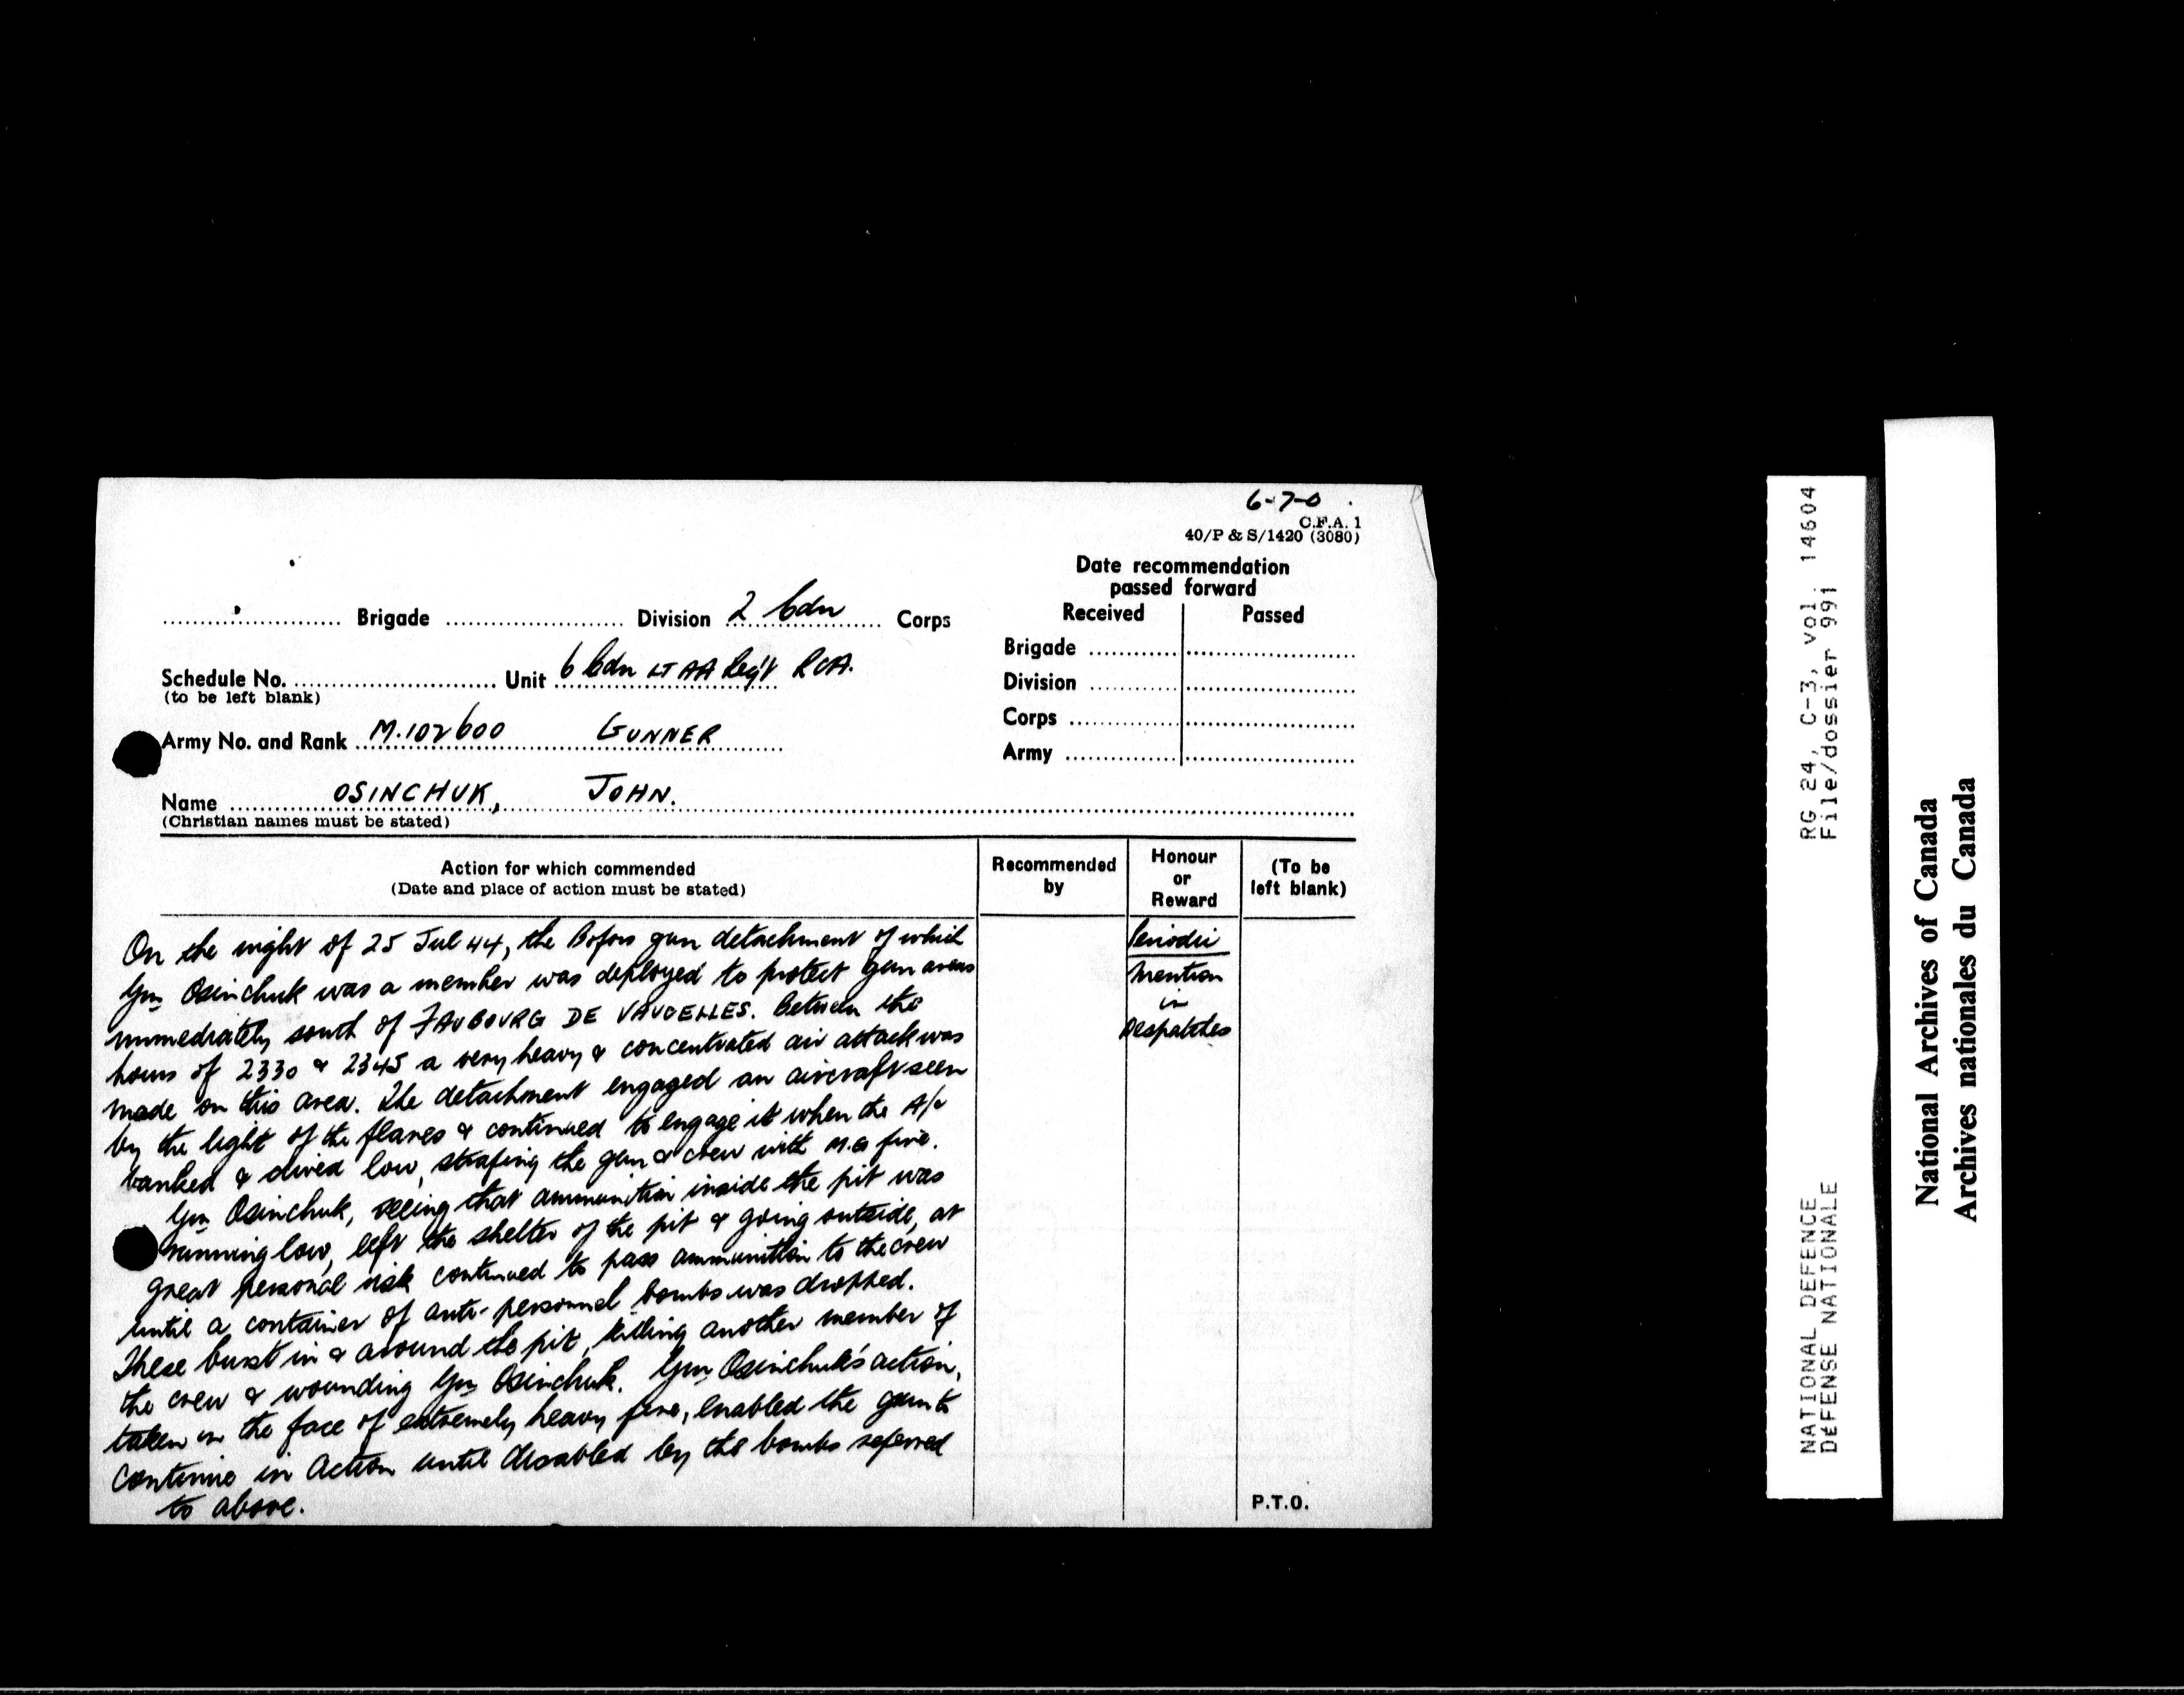 6-7-0
C.F.A. 1
40/P & S/1420 (3080)
Date recommendation
passed forward
Received Passed
Brigade
Division
Corps
Army
Brigade Division 2 Cdn Corps
Schedule No. Unit 6 Cdn LT AA Reg't RCA.
(to be left blank)
Army No. and Rank M.102600 GUNNER
Name OSINCHUK, JOHN.
(Christian names must be stated)
Action for which commended
(Date and place of action must be stated)
Recommended
by
Honour
or
Reward
(To be
left blank)
On the night of 25 Jul 44, the Bofors gun detachment of which
Gnr Osinchuk was a member was deployed to protect gun areas
immediately south of FAUBOURG DE VAUCELLES. Between the
hours of 2330 & 2345 a very heavy & concentrated air attack was
made on this area. The detachment engaged an aircraft seen
by the light of the flares & continued to engage it when the A/c
banked & dived low, strafing the gun & crew with M.G fire.
Gnr Osinchuk, seeing that ammunition inside the pit was
running low, left the shelter of the pit & going outside, at
great personal risk continued to pass ammunition to the crew
until a container of anti-personnel bombs was dropped.
These burst in & around the pit, killing another member of
the crew & wounding Gnr Osinchuk. Gnr Osinchuk's action,
taken in the face of extremely heavy fire, enabled the gun to
continue in action until disabled by the bombs referred
to above.
Periodic
Mention
in
Despatches
P.T.O.
RG 24, C-3, vol. 14604
File/dossier 991
NATIONAL DEFENCE
DEFENSE NATIONALE
National Archives of Canada
Archives nationales du Canada